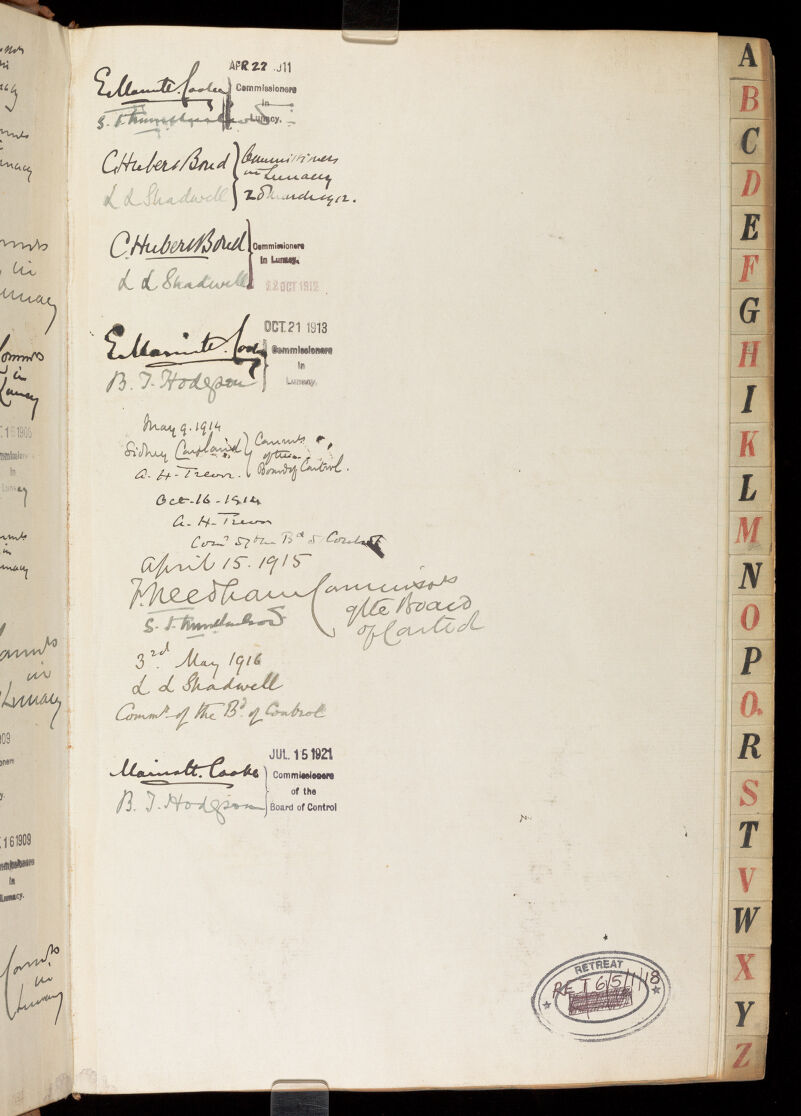 APR 22 1911
E. Marriott Cooke
Commissioners
in
Lunacy.
C. Hubert Bond
Commissioners
in Lunacy
L L Shadwell
28 March 1912.
C. Hubert Bond
Commissioners
in Lunacy.
L L Shadwell
22 OCT 1912
OCT 21 1913
E. Marriott Cooke
Commissioners
in
B. T. Hodgson
Lunacy.
May 9. 1914
Sidney Coupland
Commrs
of the
A. H. Trevor.
Board of Control.
Oct. 16 - 1914
A. H. Trevor
Comr of the Bd of Control
April 15. 1915
F. Needham
Commissors
of the Board
of Control
3rd. May 1916
L L Shadwell
Commr. of the Bd. of Control
JUL 15 1921
Marriott. Cooke
Commissioners
of the
B. T. Hodgson
Board of Control
RETREAT
RET 6/5/1/18
A
B
C
D
E
F
G
H
I
K
L
M
N
O
P
Q.
R
S
T
V
W
X
Y
Z